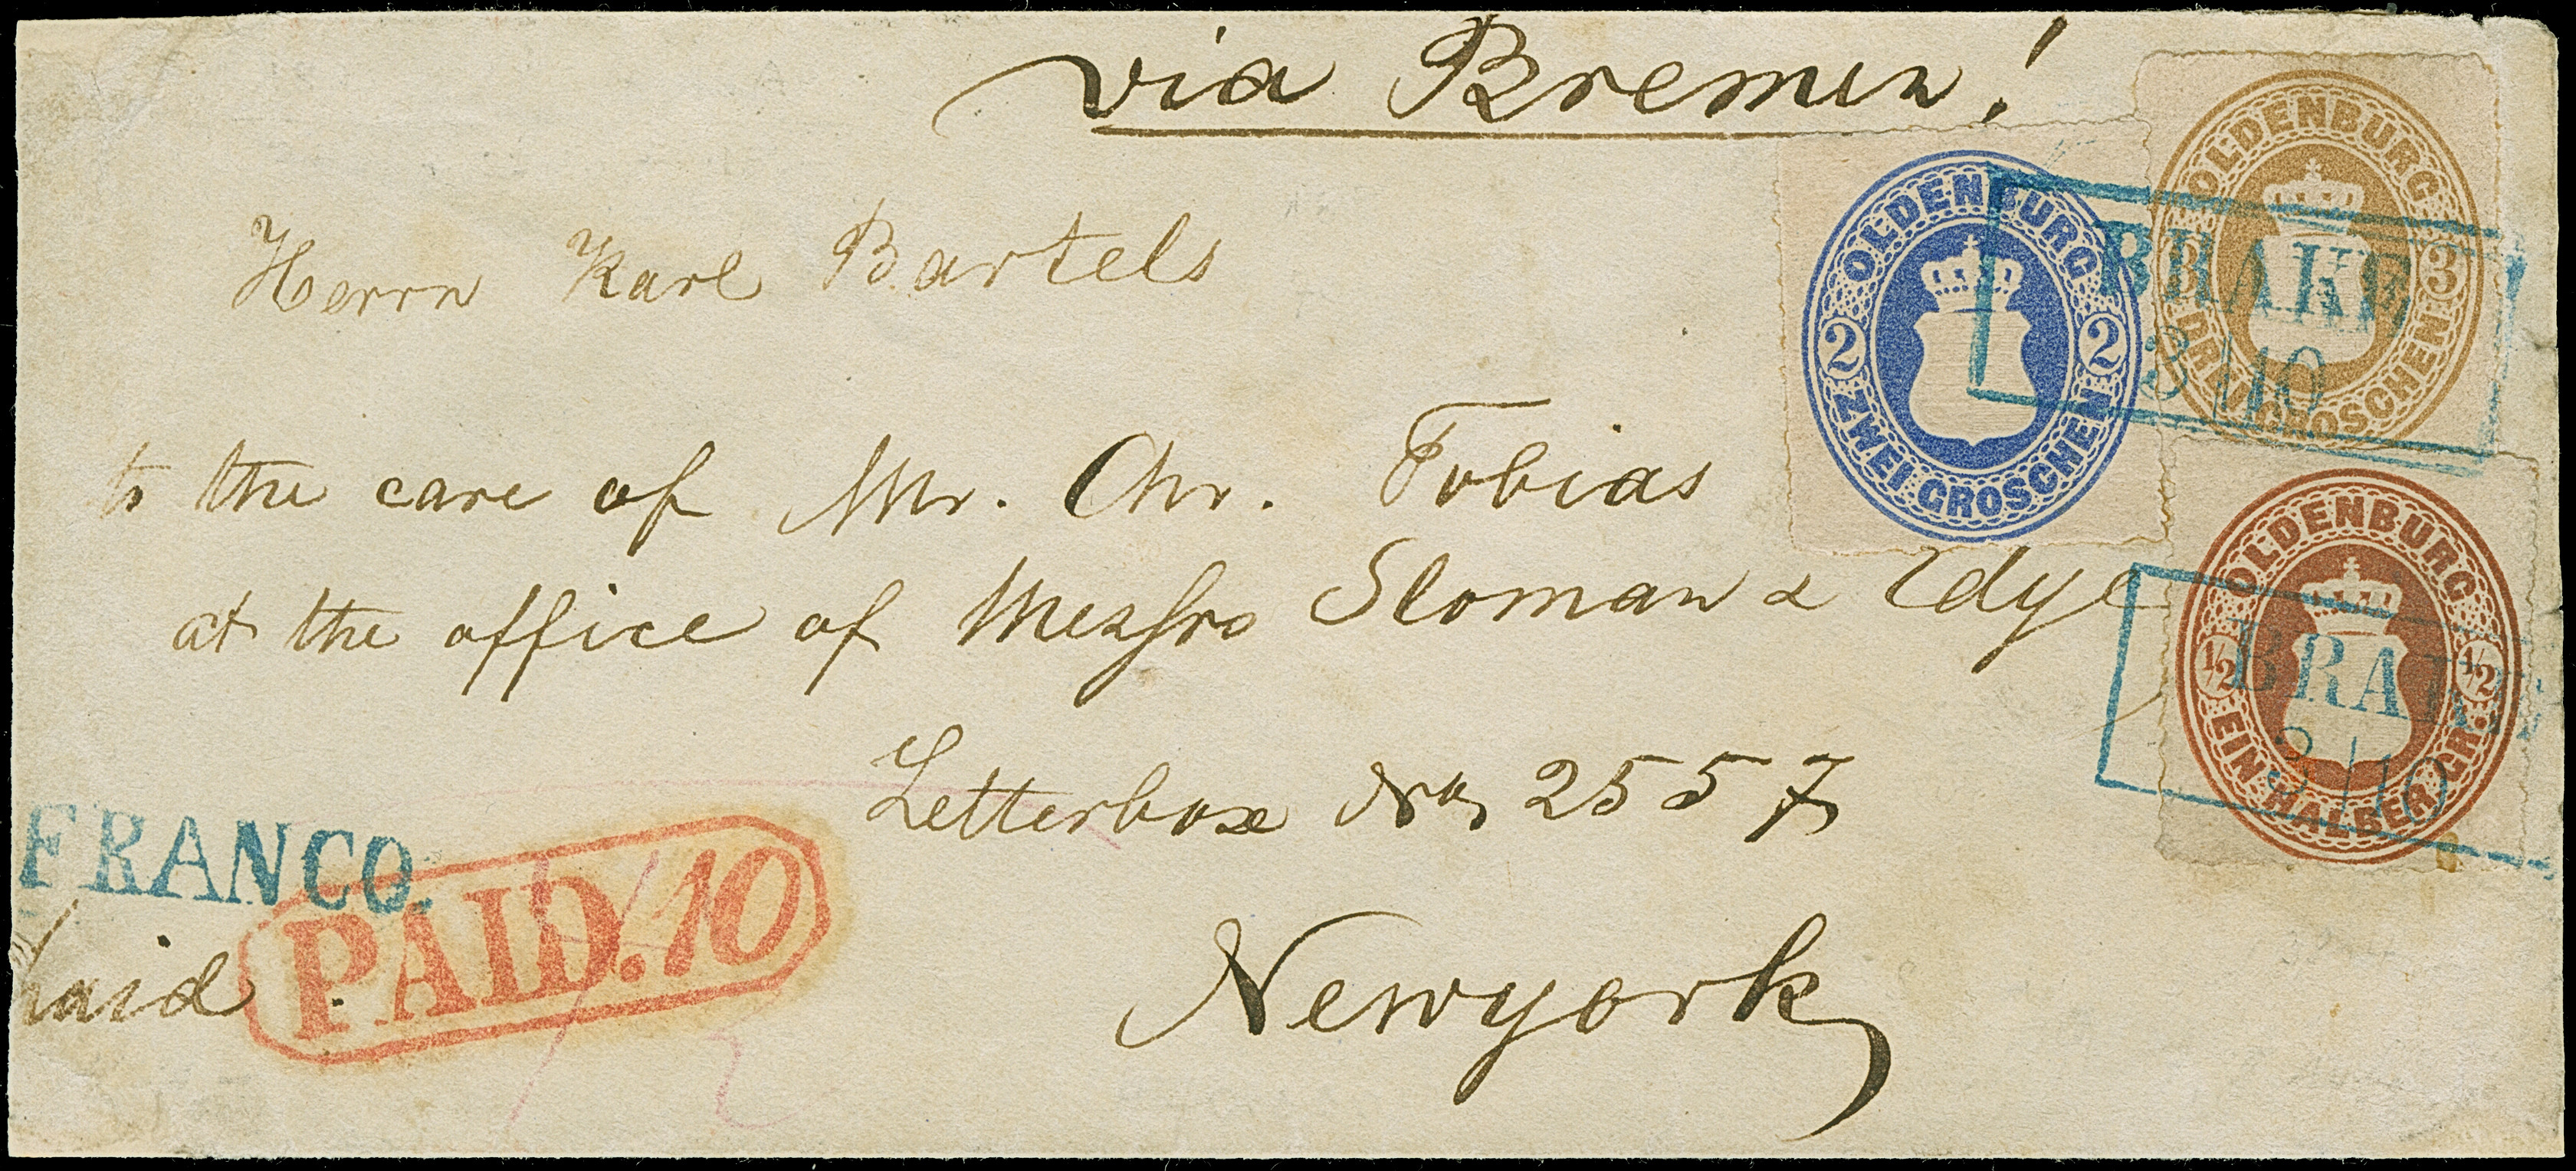 via Bremen!
Herrn Karl Bartels
to the care of Mr. Chr. Tobias
at the office of Messrs Sloman & Edye
Letterbox No, 2557
Newyork
FRANCO.
paid.
PAID. 10
OLDENBURG
2 2
ZWEI GROSCHEN
OLDENBURG
3 3
DREI GROSCHEN
BRAKE
3/10
OLDENBURG
1/2 1/2
EIN HALBER GR.
BRAKE
3/10